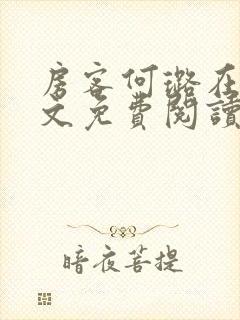 房客何璐在
文免費閱讀
暗夜菩提